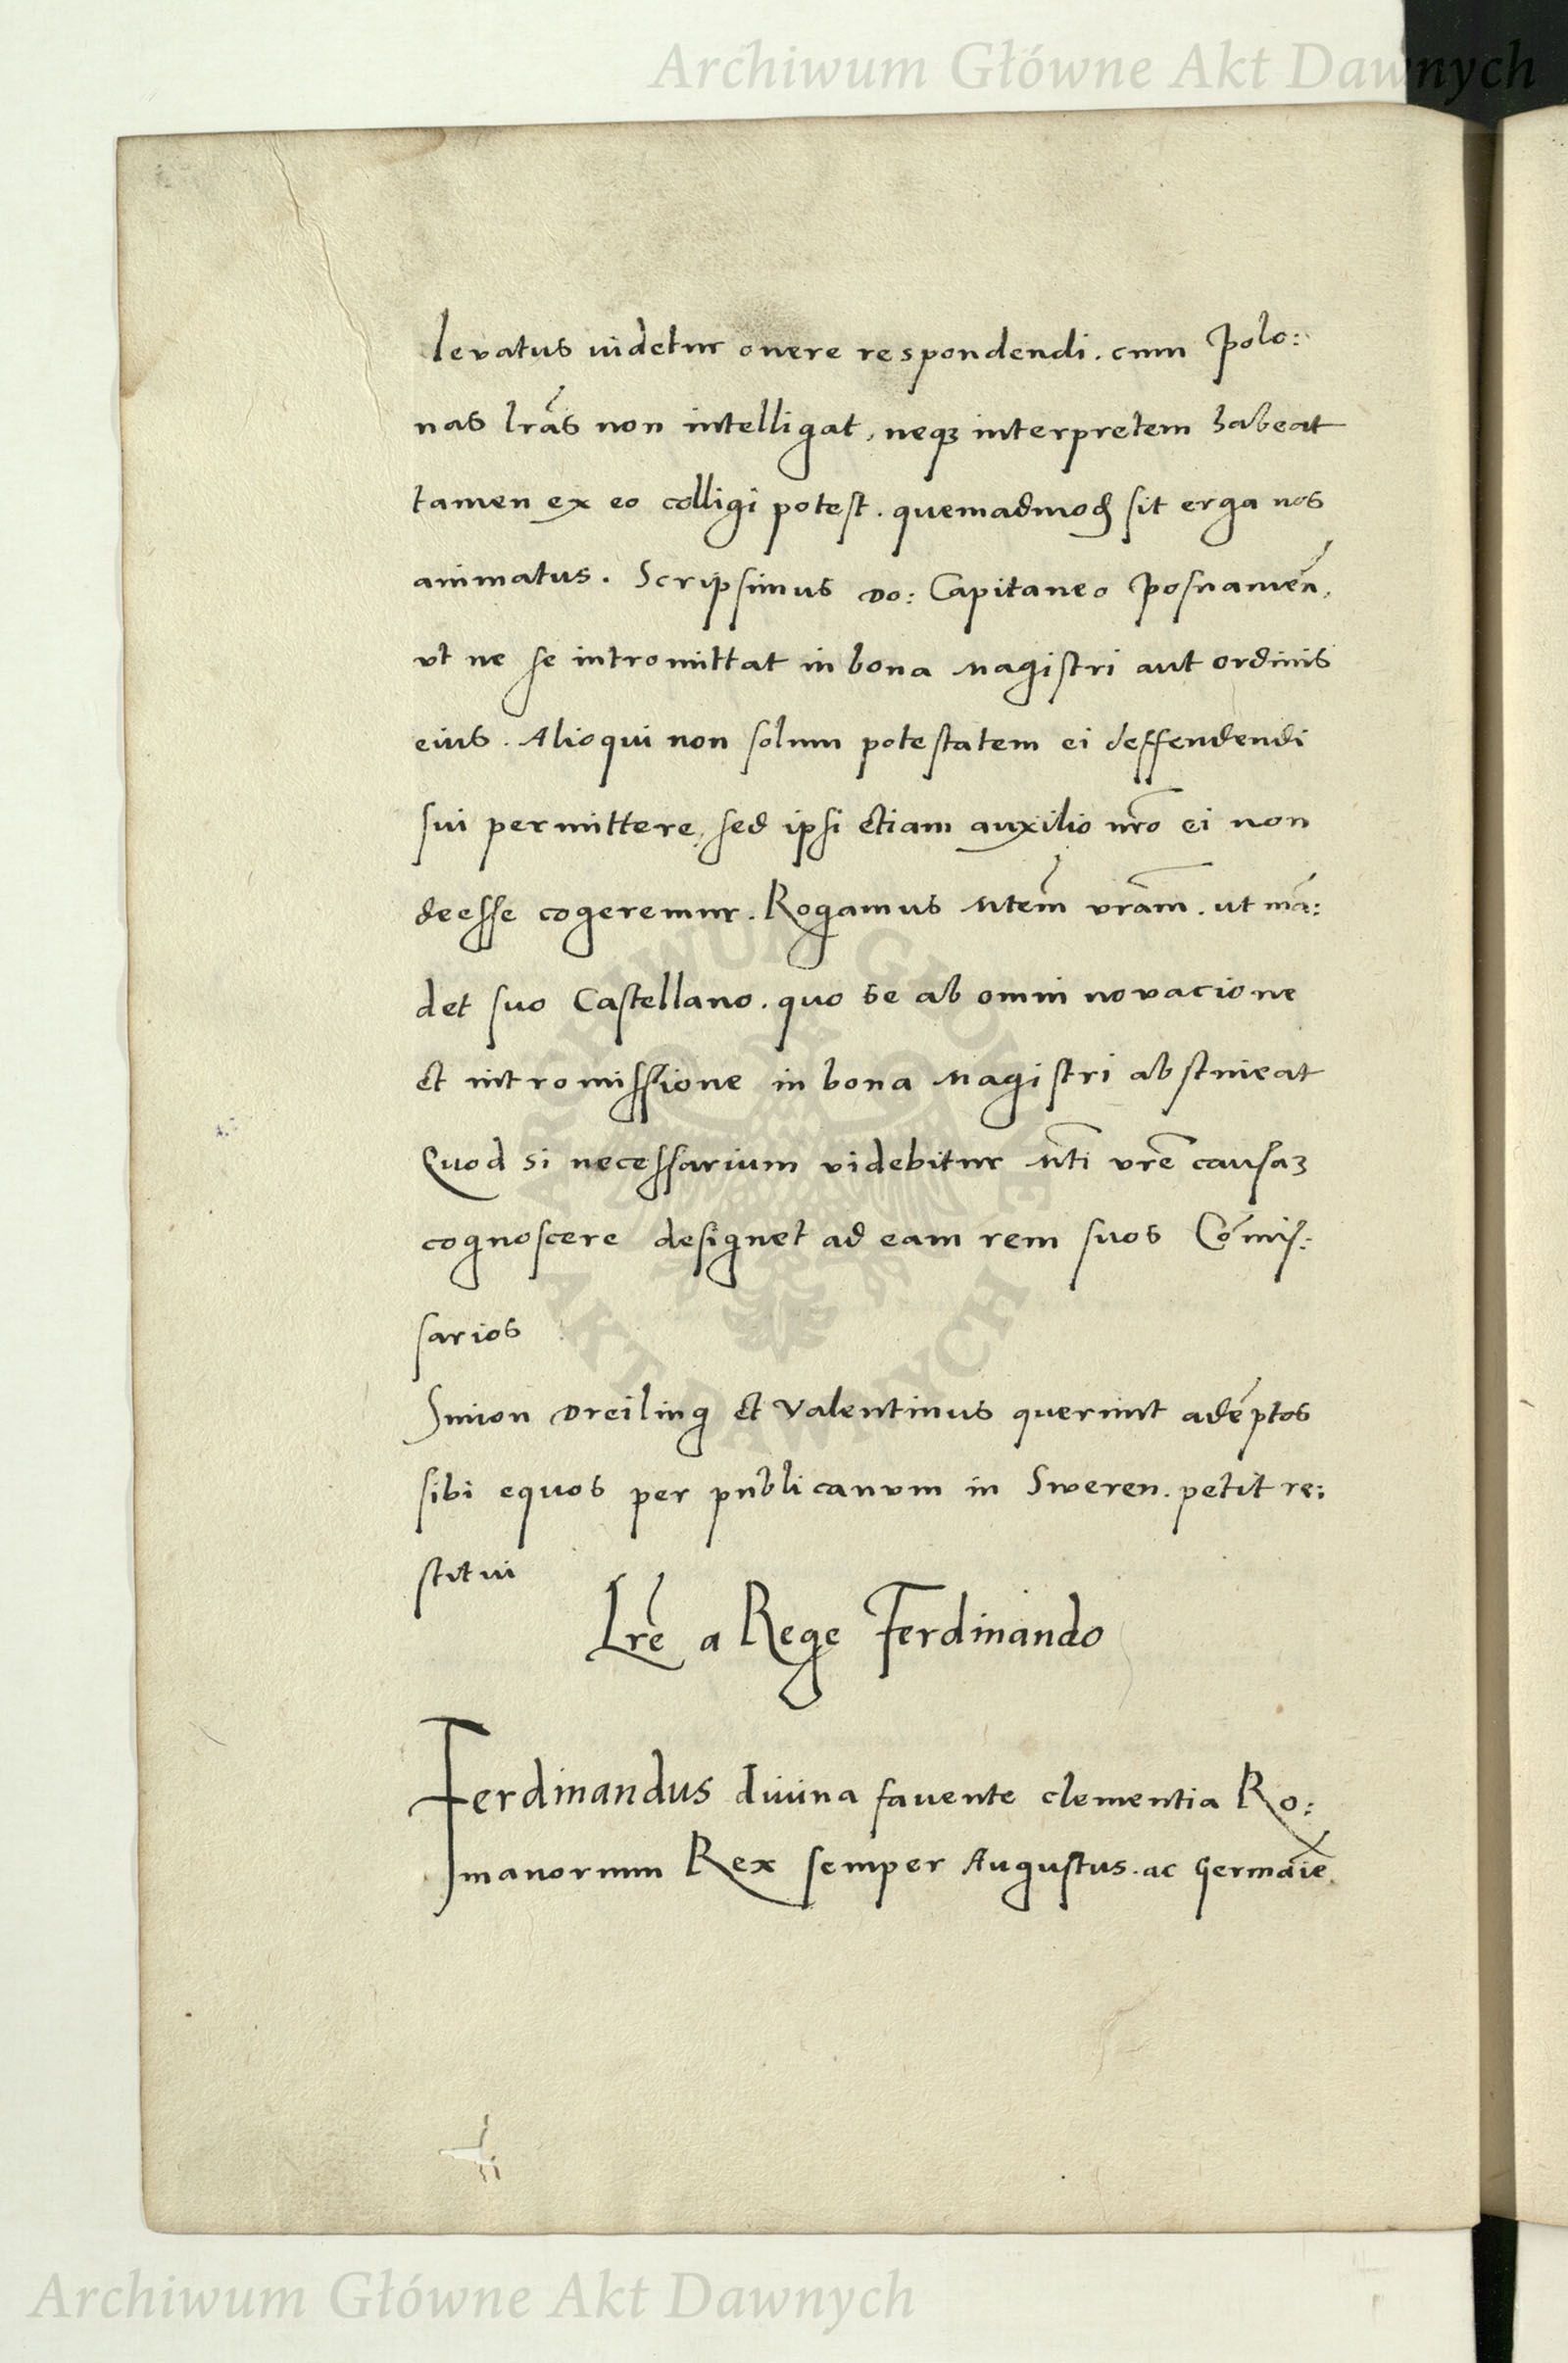 Archiwum Główne Akt Dawnych
levatus uidetur onere respondendi. cum Polo:
nas lrãs non intelligat, neqz interpretem habeat
tamen ex eo colligi potest. quemadmod sit erga nos
animatus. Scripsimus Do: Capitaneo Posnanieñ,
vt ne se intromittat in bona Magistri aut ordinis
eius. Alioqui non solum potestatem ei deffendendi
sui permittere, sed ipsi etiam auxilio nr̃o ei non
deesse cogeremur. Rogamus Mtem̃ vram̃. ut mã:
det suo Castellano. quo se ab omni novacione
et intromissione in bona Magistri abstineat
Quod si necessarium videbitur Mti̇̃ vrẽ causaz
cognoscere designet ad eam rem suos Cõmis:
sarios
Simon Dreiling et Valentinus queruntur adẽptos
sibi equos per publicanum in Sweren. petit re:
stitui
Lrẽ a Rege Ferdinando
Ferdinandus diuina fauente clementia Ro:
manorum Rex semper Augustus. ac Germãie
ARCHIWUM GŁÓWNE
AKT DAWNYCH
Archiwum Główne Akt Dawnych